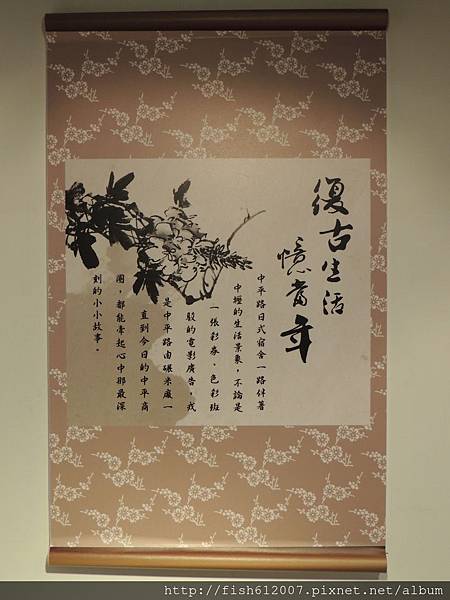 復古生活
憶當年
中平路日式宿舍一路伴著
中壢的生活景象，不論是
一張彩券、色彩斑
駁的電影廣告，或
是中平路由碾米廠一
直到今日的中平商
圈，都能牽起心中那最深
刻的小小故事。
http://fish612007.pixnet.net/album